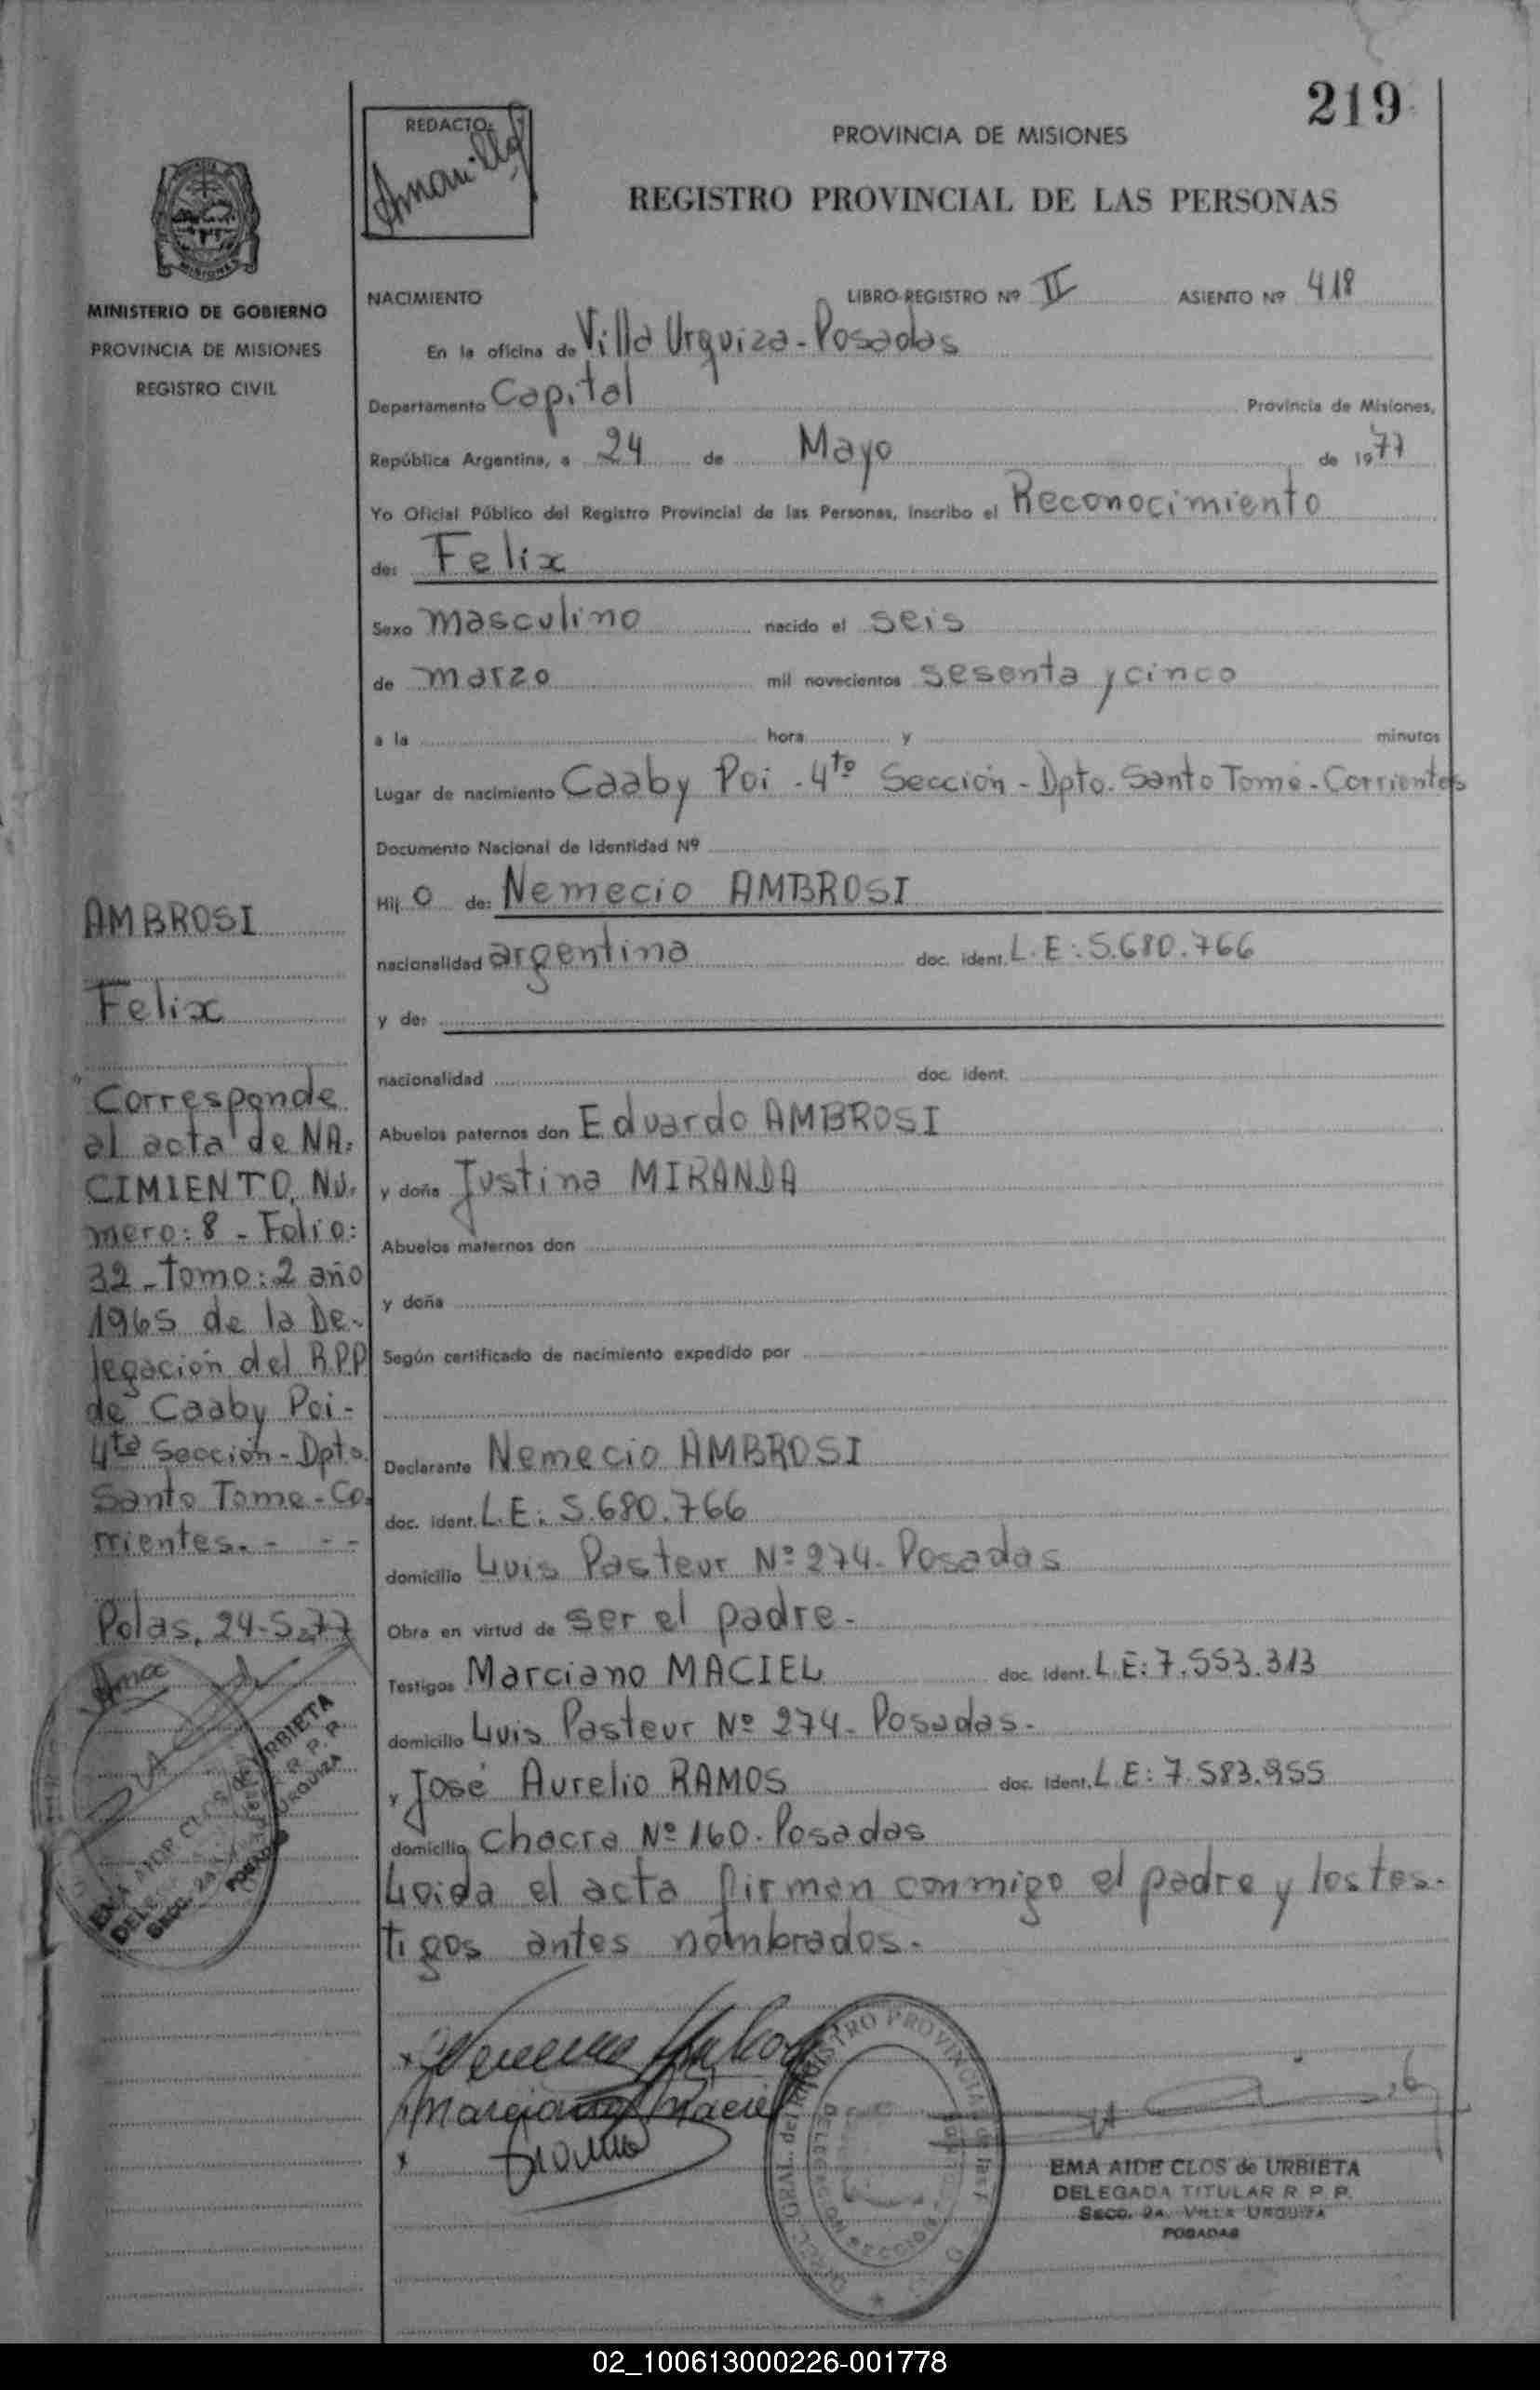 219
REDACTO:
PROVINCIA DE MISIONES
REGISTRO PROVINCIAL DE LAS PERSONAS
MISIONES
MINISTERIO DE GOBIERNO
PROVINCIA DE MISIONES
REGISTRO CIVIL
NACIMIENTO LIBRO REGISTRO Nº II ASIENTO Nº 418
En la oficina de Villa Urquiza - Posadas
Departamento Capital Provincia de Misiones,
República Argentina, a 24 de Mayo de 1977
Yo Oficial Público del Registro Provincial de las Personas, inscribo el Reconocimiento
de: Felix
Sexo masculino nacido el seis
de marzo mil novecientos sesenta y cinco
a la hora y minutos
Lugar de nacimiento Caaby Poi - 4to Sección - Dpto. Santo Tomé - Corrientes
Documento Nacional de Identidad Nº
Hij o de: Nemecio AMBROSI
nacionalidad argentina doc. ident. L.E: 5.680.766
y de:
nacionalidad doc. ident.
Abuelos paternos don Eduardo AMBROSI
y doña Justina MIRANDA
Abuelos maternos don
y doña
Según certificado de nacimiento expedido por
Declarante Nemecio AMBROSI
doc. ident. L.E: 5.680.766
domicilio Luis Pasteur Nº 274 - Posadas
Obra en virtud de ser el padre.-
Testigos Marciano MACIEL doc. ident. L.E: 7.553.313
domicilio Luis Pasteur Nº 274 - Posadas.-
y José Aurelio RAMOS doc. ident. L.E: 7.583.955
domicilio Chacra Nº 160 - Posadas
Leida el acta firman conmigo el padre y los tes-
tigos antes nombrados.-
AMBROSI
Felix
Corresponde
al acta de NA-
CIMIENTO, Nú-
mero: 8 - Folio:
32 - Tomo: 2 año
1965 de la De-
legación del R.P.P
de Caaby Poi -
4ta Sección - Dpto.
Santo Tome - Co-
rrientes. - - -
Pdas, 24-5-77
Marciano Maciel
EMA AIDE CLOS de URBIETA
DELEGADA TITULAR R. P. P.
SECC. 2A. VILLA URQUIZA
POSADAS
02_100613000226-001778